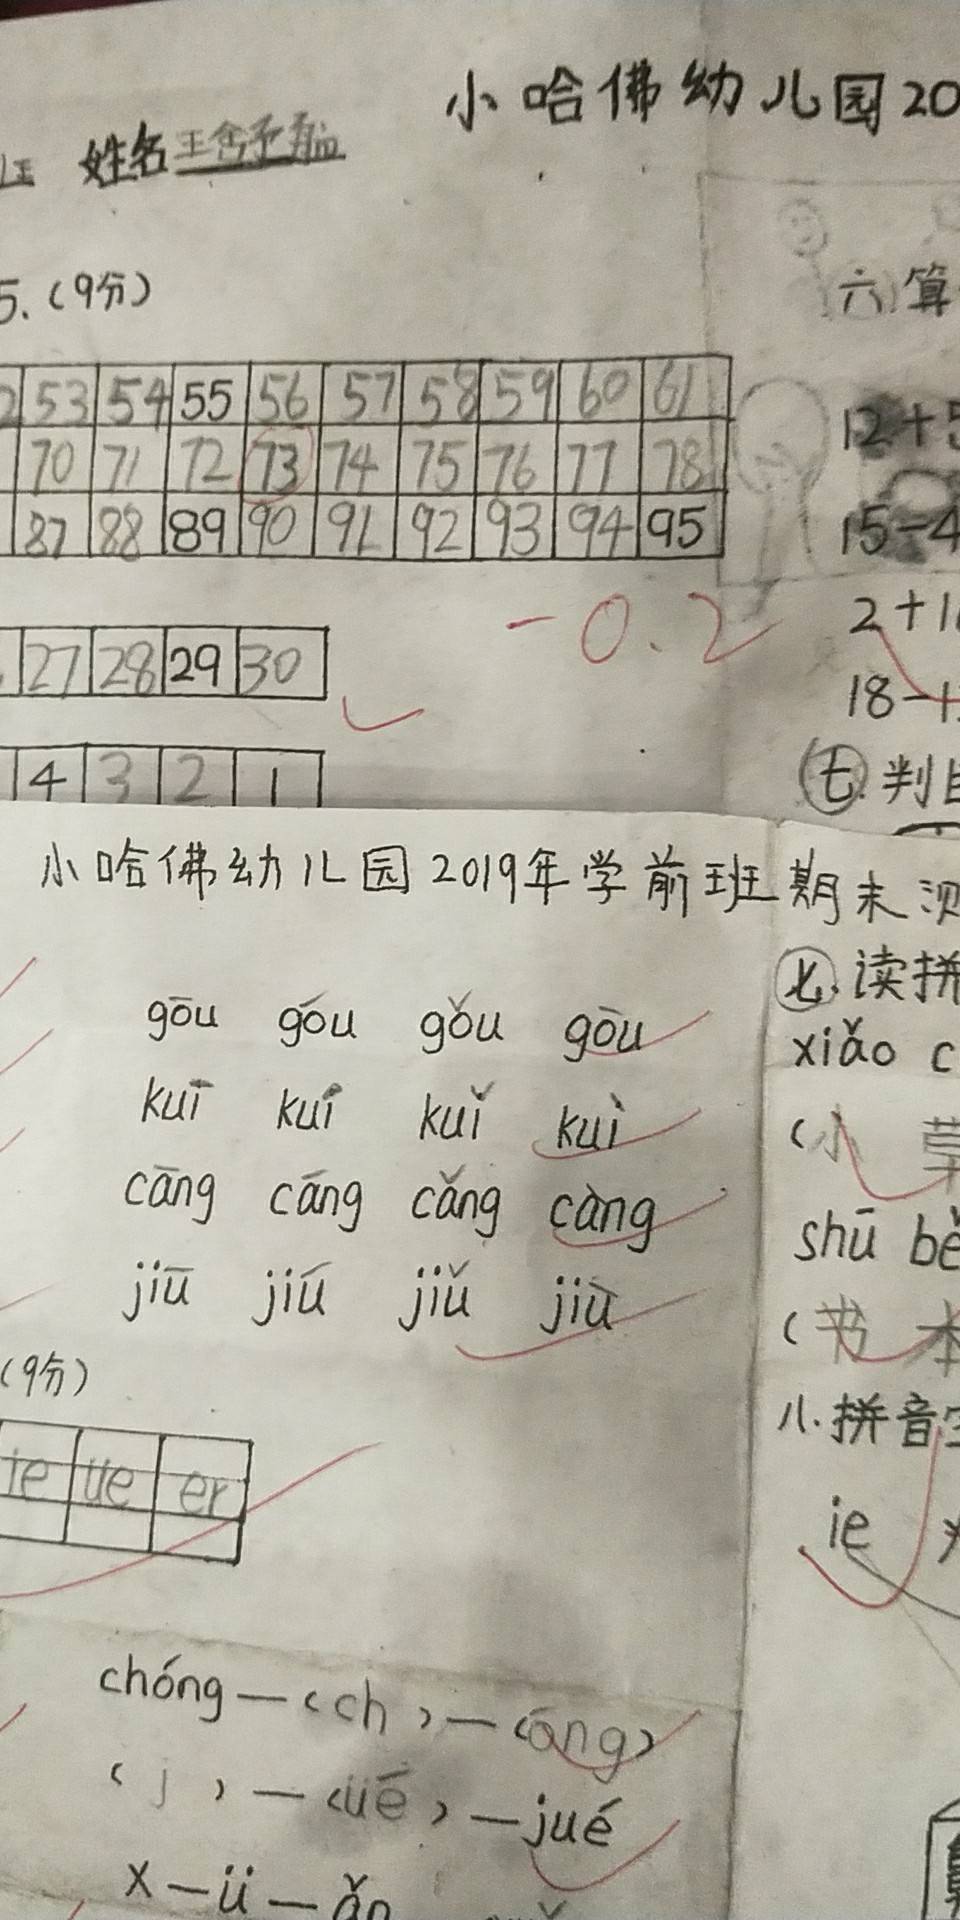 小哈佛幼儿园20
姓名
5.（9分）
53 54 55 56 57 58 59 60 61
70 71 72 73 74 75 76 77 78
87 88 89 90 91 92 93 94 95
-0.2
27 28 29 30
4 3 2 1
六.算
12+5
15-4
2+1
18-1
七.判
小哈佛幼儿园2019年学前班期末测
gōu góu gǒu gòu
kuī kuí kuǐ kuì
cāng cáng cǎng càng
jiū jiú jiǔ jiù
（9分）
ie üe er
chóng—（ch）—（óng）
（j）—（üé）—jué
x—ü—ǎn
七.读拼
xiǎo c
（小 草
shū bě
（书 本
八.拼音
ie